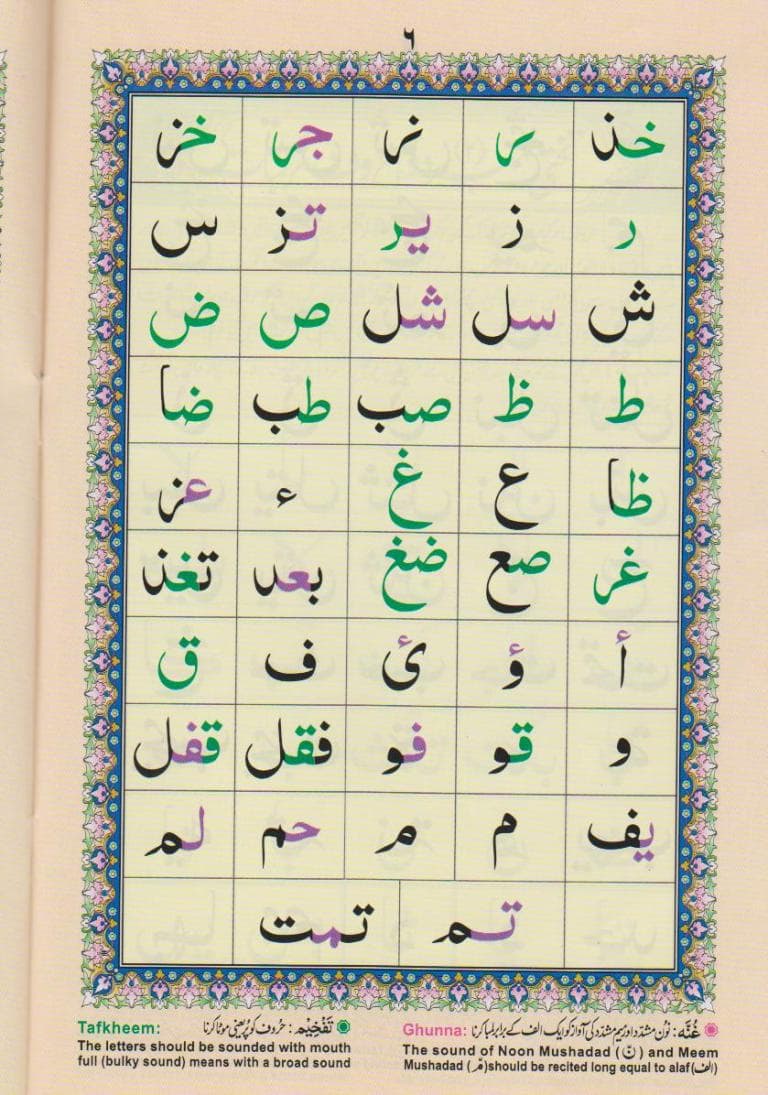 ٦
خذ ر نر جر خز
ر ز یر تز س
ش سل شل ص ض
ط ظ صب طب ضا
ظا ع غ ء عز
غر صع ضغ بعد تغذ
أ ؤ ئ ف ق
و قو فو فقل قفل
یف م م حم لم
تم تمت
غُنَّه: نون مشدد اور میم مشدد کی آواز کو ایک الف کے برابر لمبا کرنا
Ghunna:
The sound of Noon Mushadad (نّ) and Meem
Mushadad (مّ) should be recited long equal to alaf (الف)
تَفْخِیْم: حروف کو پُر یعنی موٹا کرنا
Tafkheem:
The letters should be sounded with mouth
full (bulky sound) means with a broad sound